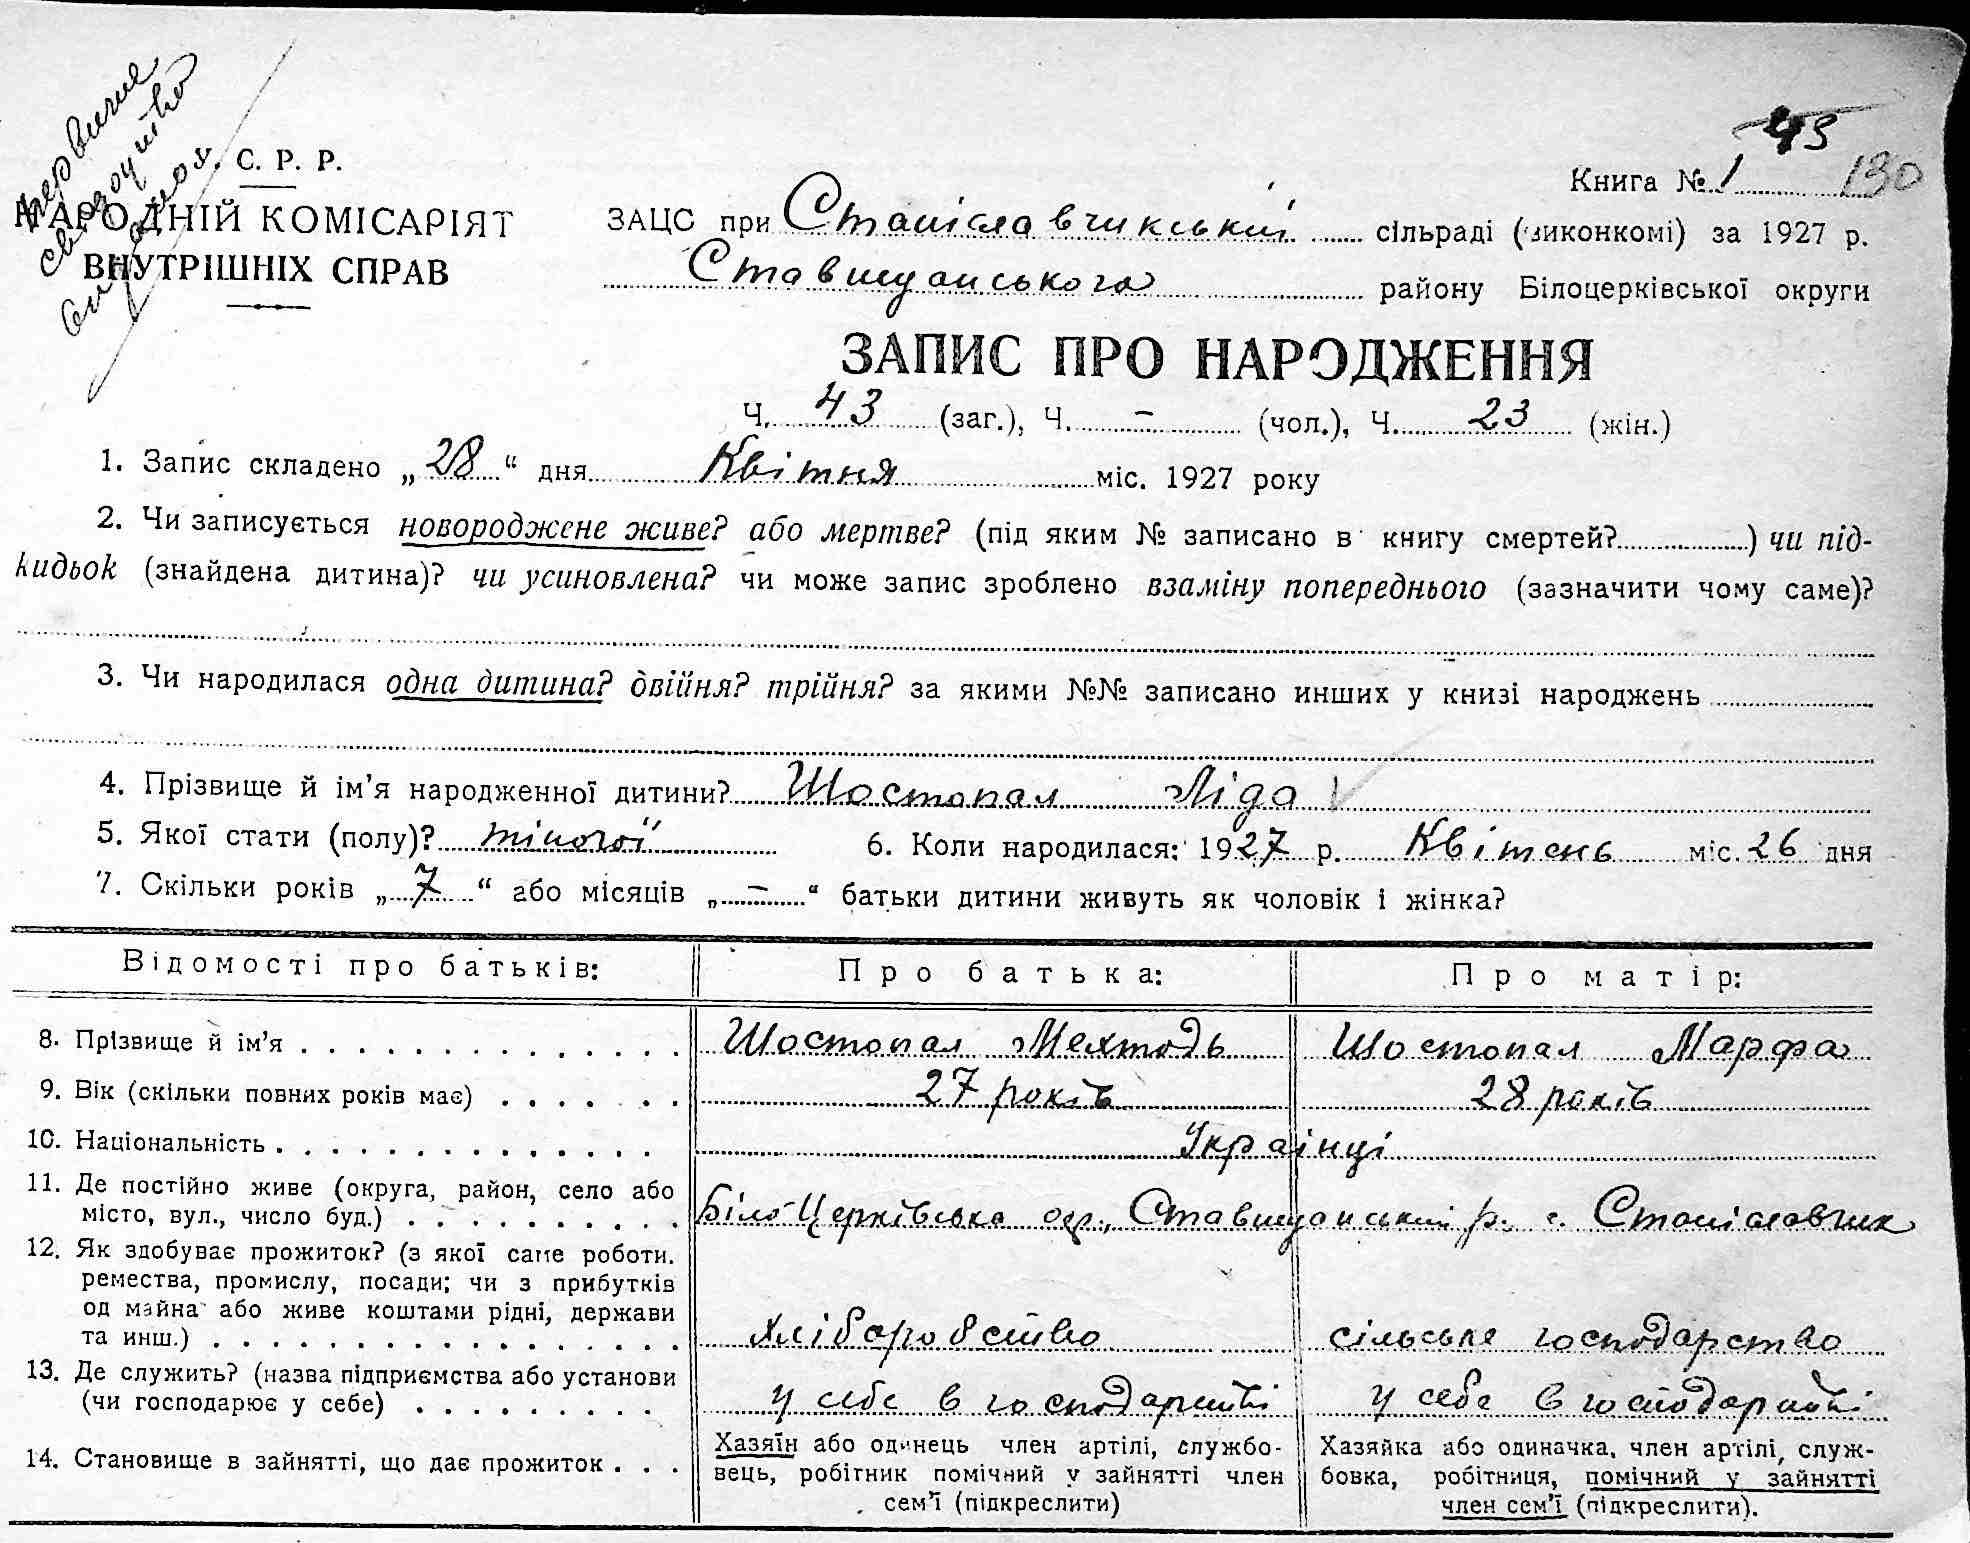 первичне
свідоцтво
видано
У. С. Р. Р.
НАРОДНІЙ КОМІСАРІЯТ
ВНУТРІШНІХ СПРАВ
43
Книга № 1 130
ЗАЦС при Станіславчикській сільраді (виконкомі) за 1927 р.
Ставищанського району Білоцерківської округи
ЗАПИС ПРО НАРОДЖЕННЯ
Ч. 43 (заг.), Ч. – (чол.), Ч. 23 (жін.)
1. Запис складено „28“ дня Квітня міс. 1927 року
2. Чи записується новороджене живе? або мертве? (під яким № записано в книгу смертей? ) чи під-
кидьок (знайдена дитина)? чи усиновлена? чи може запис зроблено взаміну попереднього (зазначити чому саме)?
3. Чи народилася одна дитина? двійня? трійня? за якими №№ записано инших у книзі народжень
4. Прізвище й ім’я народженної дитини? Шостопал Ліда
5. Якої стати (полу)? жіночої 6. Коли народилася: 1927 р. Квітень міс. 26 дня
7. Скільки років „7“ або місяців „–“ батьки дитини живуть як чоловік і жінка?
Відомості про батьків: Про батька: Про матір:
8. Прізвище й ім’я Шостопал Мехтодь Шостопал Марфа
9. Вік (скільки повних років має) 27 років 28 років
10. Національність Українці
11. Де постійно живе (округа, район, село або
місто, вул., число буд.) Біло-Церківська окр., Ставищанський р. с. Станіславчик
12. Як здобуває прожиток? (з якої саме роботи.
ремества, промислу, посади; чи з прибутків
од майна або живе коштами рідні, держави
та инш.) Хліборобство сільське господарство
13. Де служить? (назва підприємства або установи
(чи господарює у себе) у себе в господарстві у себе в господарстві
14. Становище в зайнятті, що дає прожиток
Хазяїн або одинець член артілі, службо-
вець, робітник помічний у зайнятті член
сем’ї (підкреслити)
Хазяйка або одиначка, член артілі, служ-
бовка, робітниця, помічний у зайнятті
член сем’ї (підкреслити).